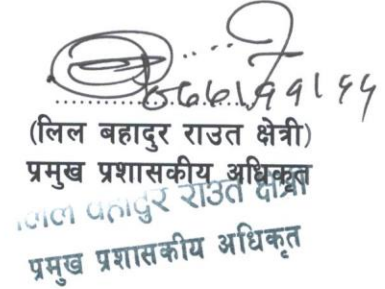 (लिल बहादुर राउत क्षेत्री)
प्रमुख प्रशासकीय अधिकृत
लिल बहादुर राउत क्षेत्री
प्रमुख प्रशासकीय अधिकृत